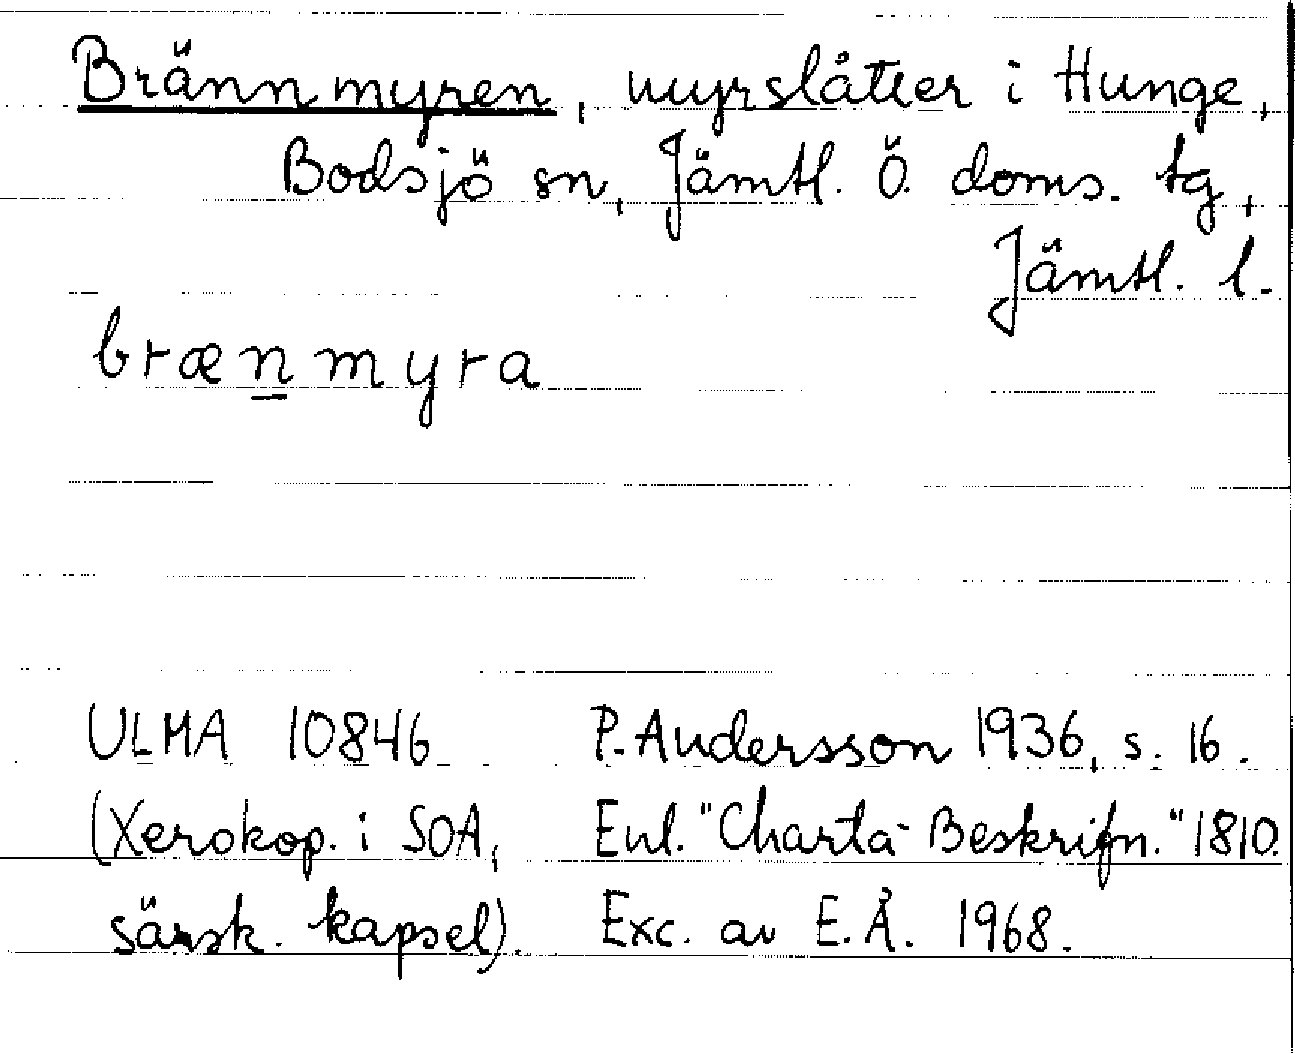 Brännmyren, myrslåtter i Hunge,
Bodsjö sn, Jämtl. Ö. doms. tg,
Jämtl. l.
brænmyra
ULMA 10846 P. Andersson 1936, s. 16.
(Xerokop. i SOA, Enl. "Charta-Beskrifn." 1810.
särsk. kapsel). Exc. av E.Å. 1968.